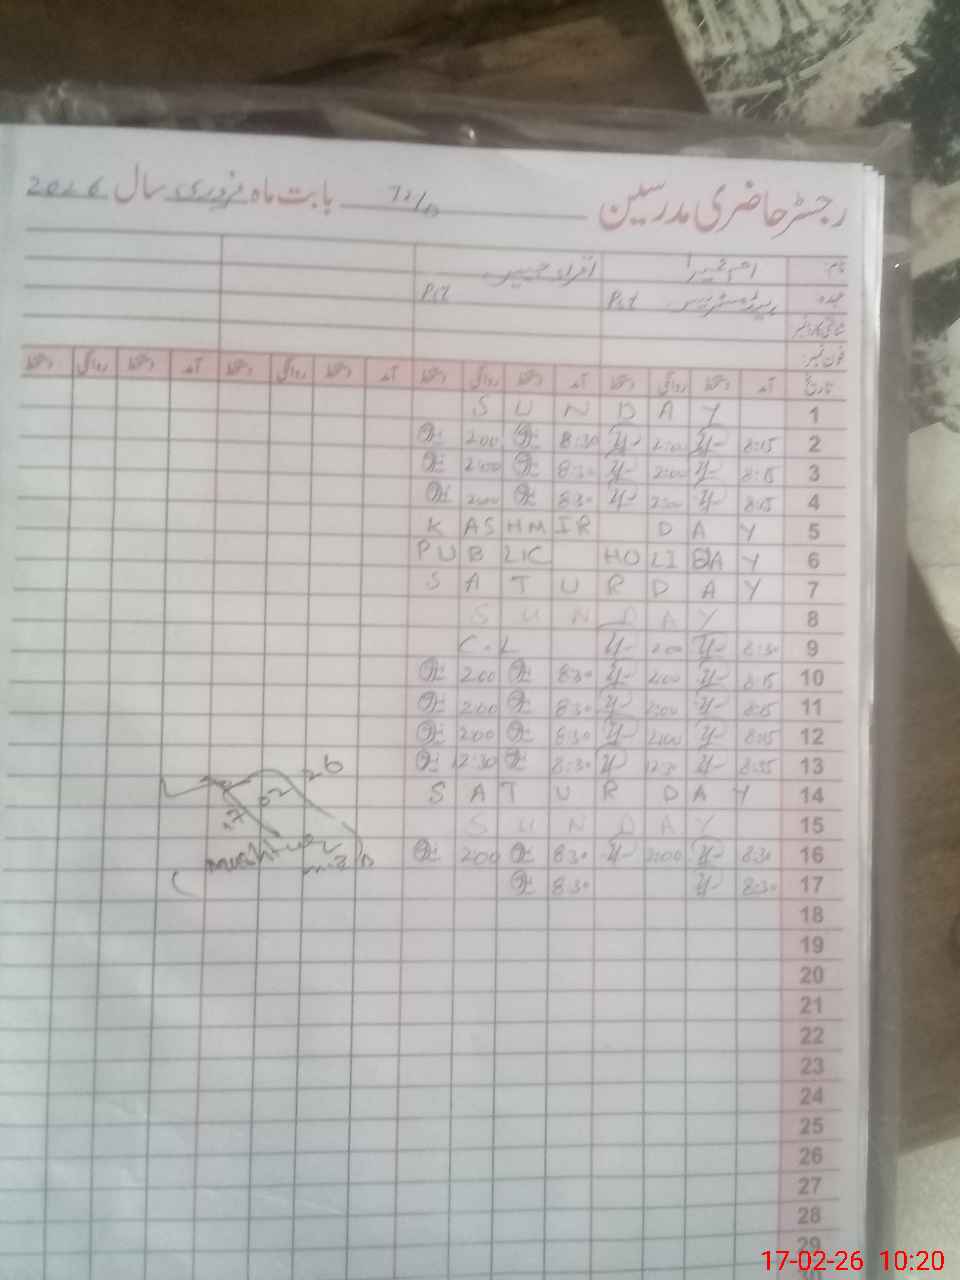 رجسٹر حاضری مدرسین بابت ماہ فروری سال 2026
نام
عہدہ Pst Pst
شناختی کارڈ نمبر
فون نمبر:
تاریخ آمد دستخط روانگی دستخط آمد دستخط روانگی دستخط آمد دستخط روانگی دستخط آمد دستخط روانگی دستخط
1 SUNDAY
2 8:15 2:00 8:30 2:00
3 8:15 2:00 8:30 2:00
4 8:15 2:00 8:30 2:00
5 KASHMIR DAY
6 PUBLIC HOLIDAY
7 SATURDAY
8 SUNDAY
9 8:30 2:00 C.L
10 8:15 2:00 8:30 2:00
11 8:15 2:00 8:30 2:00
12 8:15 2:00 8:30 2:00
13 8:35 12:30 8:30 12:30
14 SATURDAY
15 SUNDAY
16 8:30 2:00 8:30 2:00
17 8:30 8:30
18
19
20
21
22
23
24
25
26
27
28
29
17-02-26 10:20